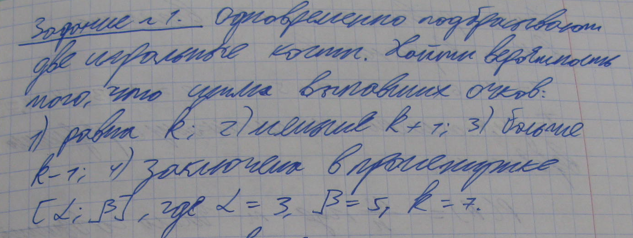 Задание №1. Одновременно подбрасывают
две игральные кости. Найти вероятность
того, что сумма выпавших очков:
1) равна k; 2) меньше k+1; 3) больше
k-1; 4) заключена в промежутке
[α; β], где α = 3, β = 5, k = 7.